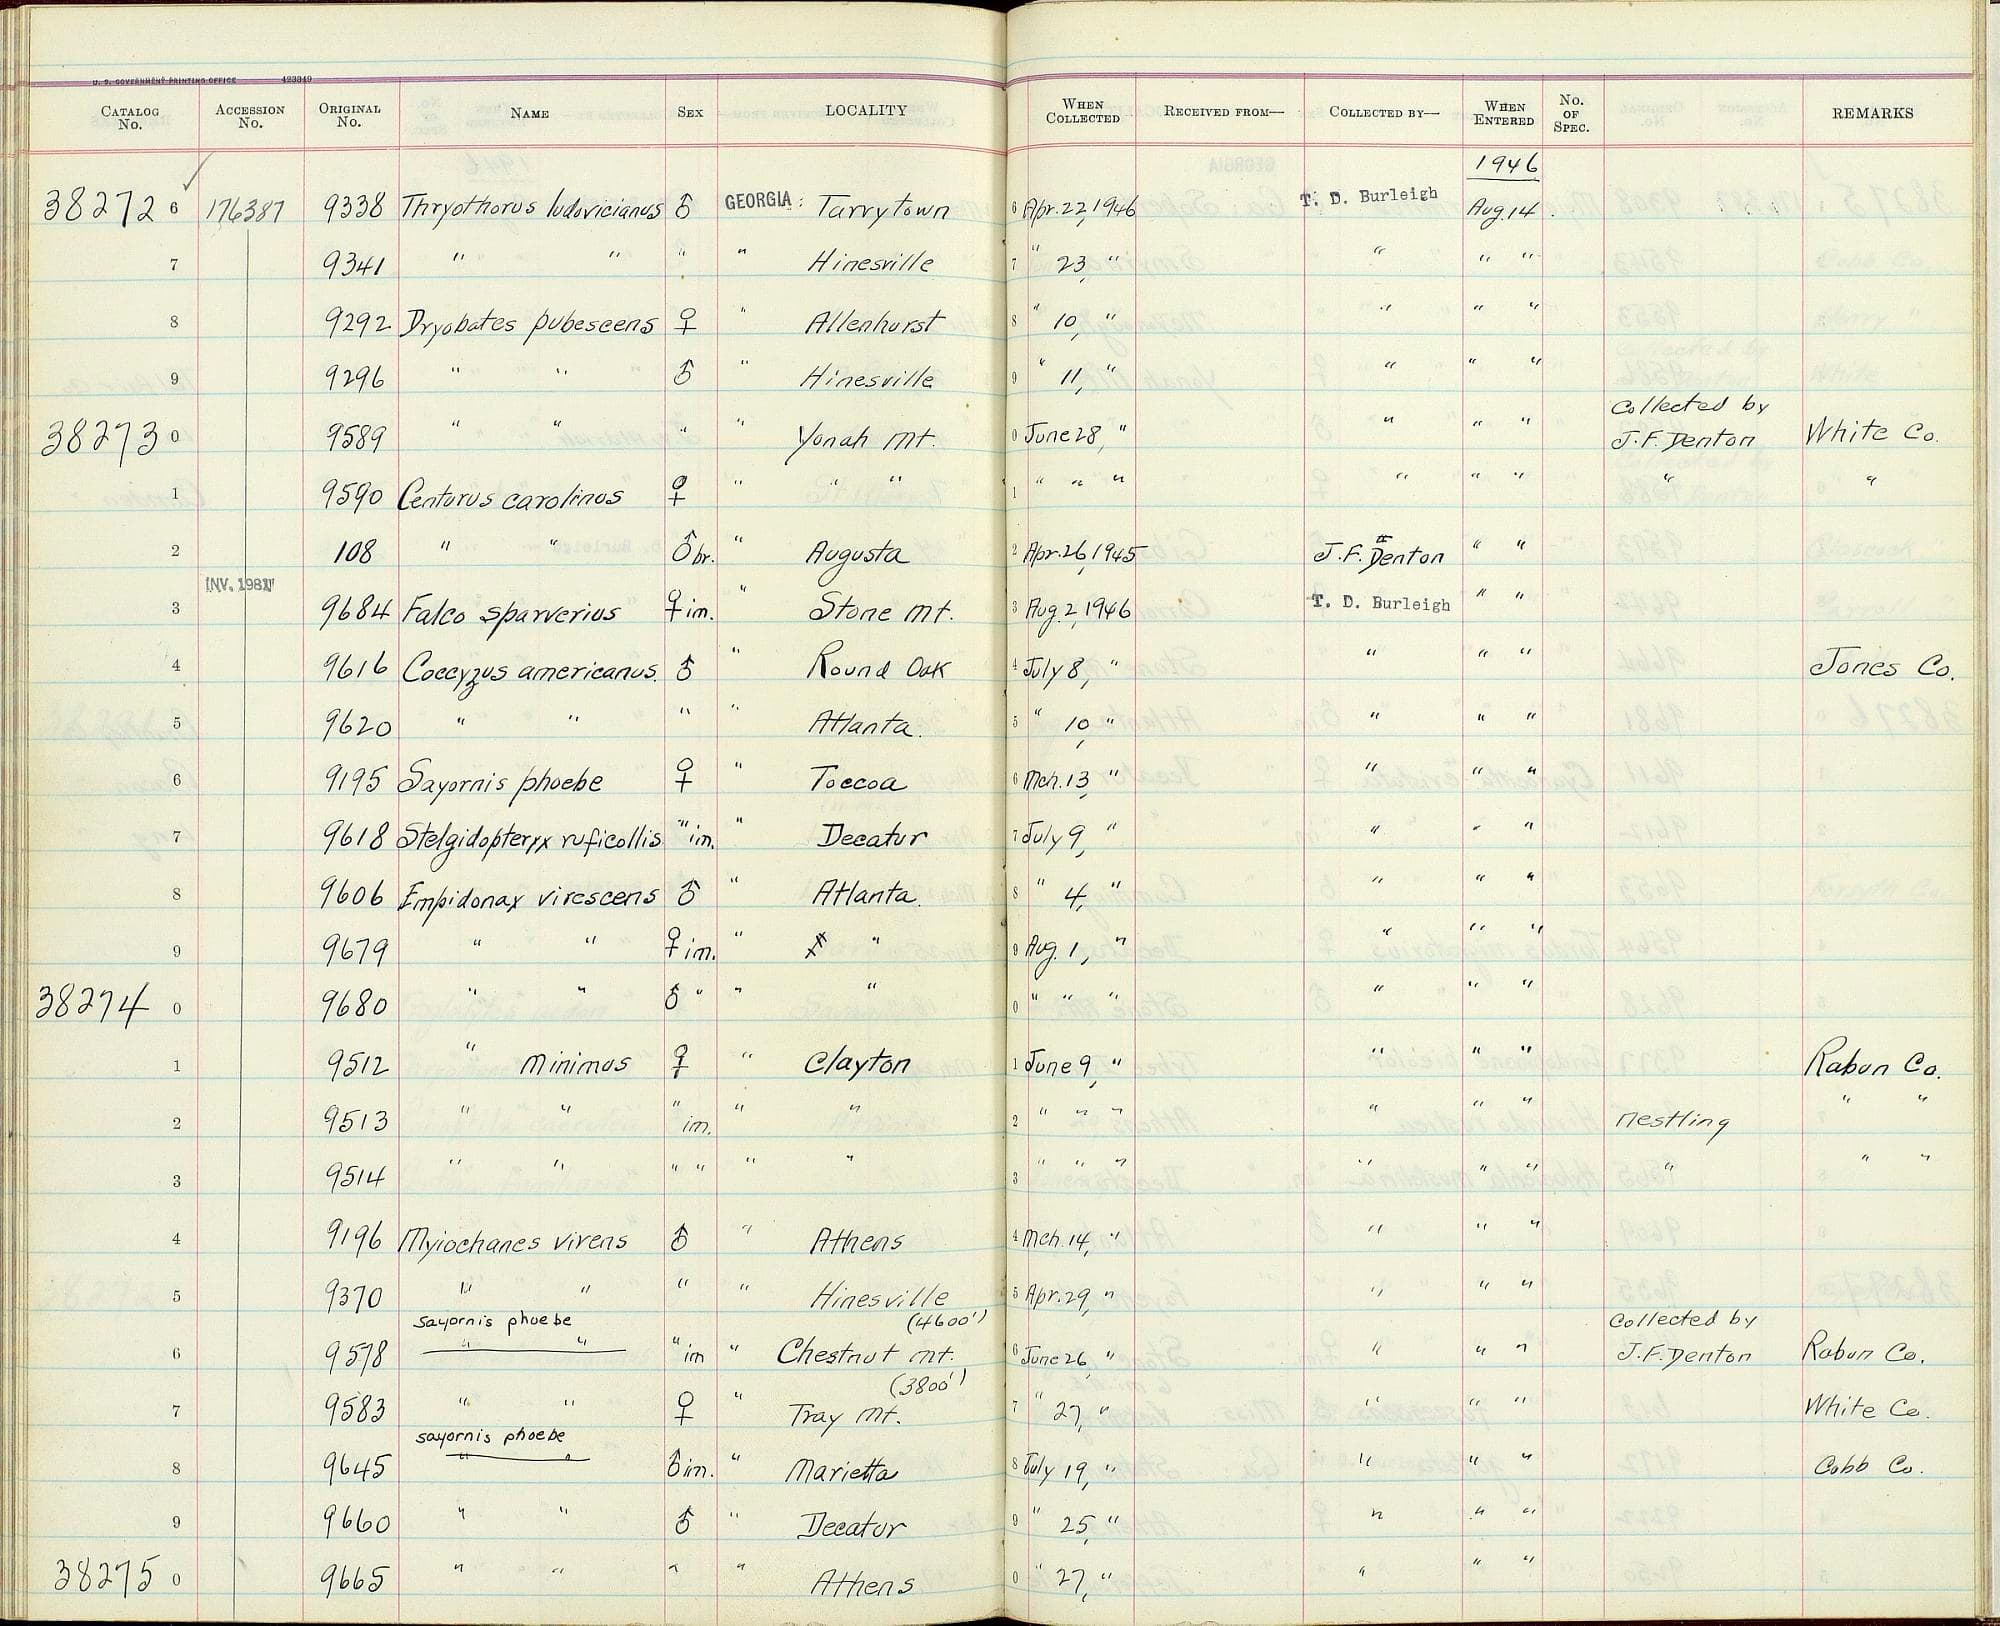 U. S. GOVERNMENT PRINTING OFFICE 423349
CATALOG No. ACCESSION No. ORIGINAL No. NAME SEX LOCALITY WHEN COLLECTED RECEIVED FROM— COLLECTED BY— WHEN ENTERED No. OF SPEC. REMARKS
1946
38272 6 176387 9338 Thryothorus ludovicianus ♂ GEORGIA: Tarrytown 6 Apr. 22, 1946 T. D. Burleigh Aug. 14
7 9341 " " " " Hinesville 7 " 23, " " " "
8 9292 Dryobates pubescens ♀ " Allenhurst 8 " 10, " " " "
9 9296 " " ♂ " Hinesville 9 " 11, " " " "
38273 0 9589 " " " " Yonah Mt. 0 June 28, " " " " Collected by J. F. Denton White Co.
1 9590 Centurus carolinus ♀ " " " 1 " " " " " " " "
2 108 " " ♂ br. " Augusta 2 Apr. 26, 1945 J. F. Denton " "
INV. 1981
3 9684 Falco sparverius ♀ im. " Stone Mt. 3 Aug. 2, 1946 T. D. Burleigh " "
4 9616 Coccyzus americanus. ♂ " Round Oak 4 July 8, " " " " Jones Co.
5 9620 " " " " Atlanta. 5 " 10, " " " "
6 9195 Sayornis phoebe ♀ " Toccoa 6 Mch. 13, " " " "
7 9618 Stelgidopteryx ruficollis " im. " Decatur 7 July 9, " " " "
8 9606 Empidonax virescens ♂ " Atlanta. 8 " 4, " " " "
9 9679 " " ♀ im. " " 9 Aug. 1, " " " "
38274 0 9680 " " ♂ " " " 0 " " " " " "
1 9512 " minimus ♀ " Clayton 1 June 9, " " " " Rabun Co.
2 9513 " " " im. " " 2 " " " " " " nestling " "
3 9514 " " " " " " 3 " " " " " " " " "
4 9196 Myiochanes virens ♂ " Athens 4 Mch. 14, " " " "
5 9370 " " " " Hinesville 5 Apr. 29, " " " "
sayornis phoebe (4600') Collected by
6 9578 " " " im " Chestnut Mt. 6 June 26, " " " " J. F. Denton Rabun Co.
(3800')
7 9583 " " ♀ " Tray Mt. 7 " 27, " " " " White Co.
sayornis phoebe
8 9645 " " ♂ im. " Marietta 8 July 19, " " " " Cobb Co.
9 9660 " " ♂ " Decatur 9 " 25, " " " "
38275 0 9665 " " " " Athens 0 " 27, " " " "